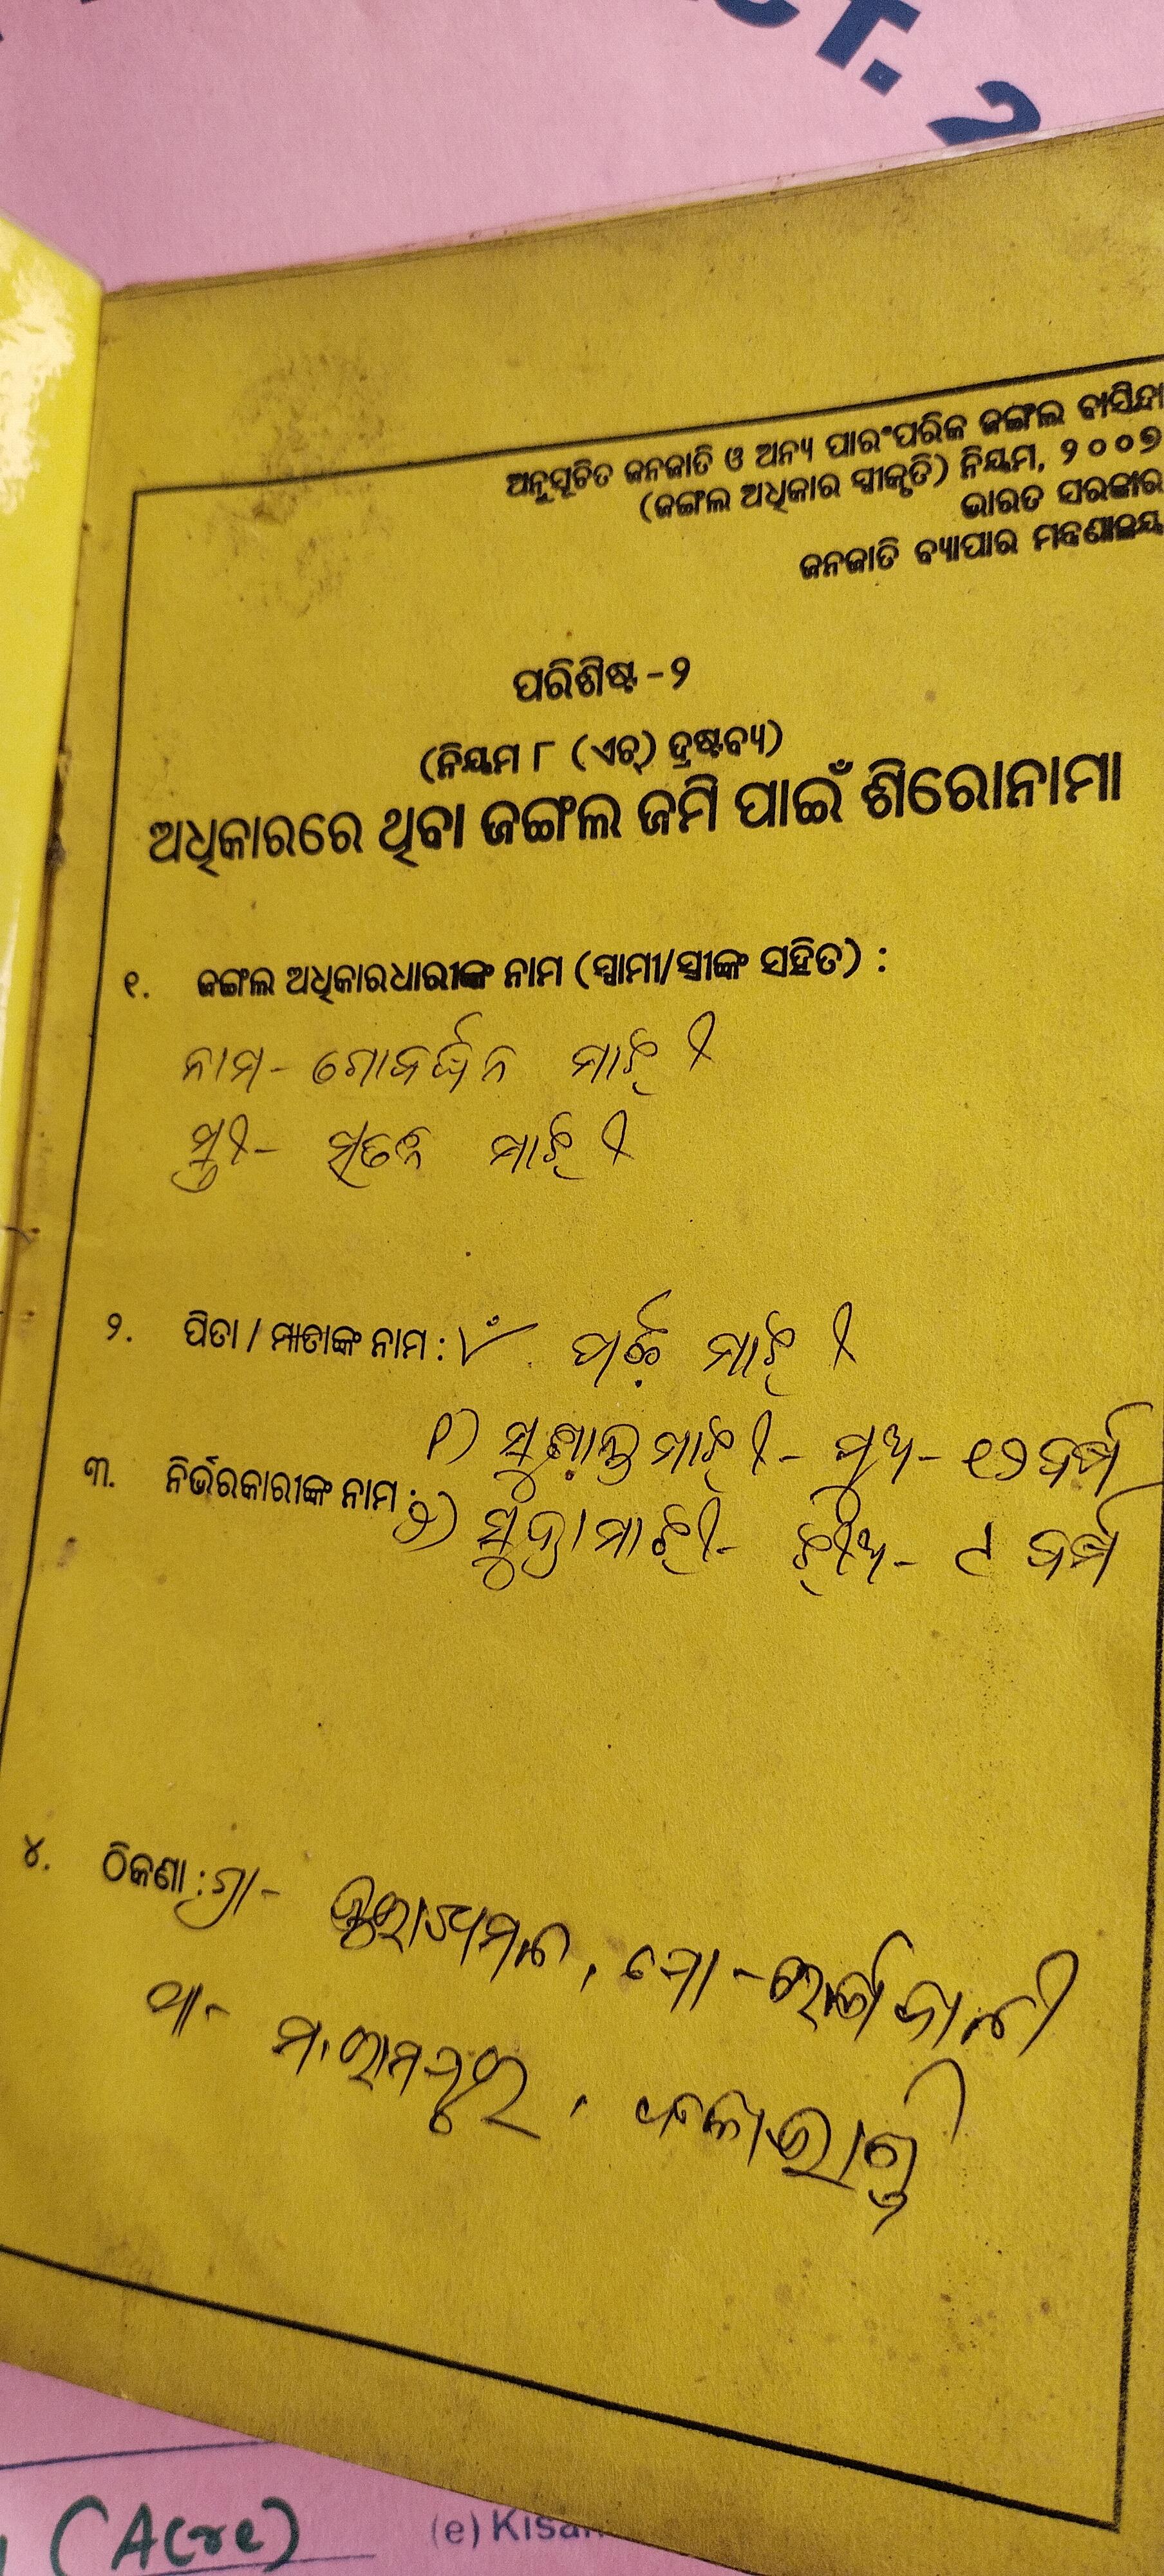 CT. 2
ଅନୁସୂଚିତ ଜନଜାତି ଓ ଅନ୍ୟ ପାରଂପରିକ ଜଙ୍ଗଲ ବାସିନ୍ଦା
(ଜଙ୍ଗଲ ଅଧିକାର ସ୍ୱୀକୃତି) ନିୟମ, ୨୦୦୭
ଭାରତ ସରକାର
ଜନଜାତି ବ୍ୟାପାର ମନ୍ତ୍ରଣାଳୟ
ପରିଶିଷ୍ଟ - ୨
(ନିୟମ ୮ (ଏଚ୍) ଦ୍ରଷ୍ଟବ୍ୟ)
ଅଧିକାରରେ ଥିବା ଜଙ୍ଗଲ ଜମି ପାଇଁ ଶିରୋନାମା
୧. ଜଙ୍ଗଲ ଅଧିକାରଧାରୀଙ୍କ ନାମ (ସ୍ୱାମୀ/ସ୍ତ୍ରୀଙ୍କ ସହିତ) :
ନାମ - ଗୋବର୍ଦ୍ଧନ ମାଝୀ
ସ୍ତ୍ରୀ - ମାଝୀ
୨. ପିତା / ମାତାଙ୍କ ନାମ : ମାଝୀ
୧) ମାଝୀ - ପୁଅ - ୧୨ ବର୍ଷ
୩. ନିର୍ଭରକାରୀଙ୍କ ନାମ :
୨) ମାଝୀ - ଝିଅ - ୯ ବର୍ଷ
୪. ଠିକଣା : ଗ୍ରା -
ଥା - ମ. ରାମପୁର, କଳାହାଣ୍ଡି
(Acre)
(e) Kisan